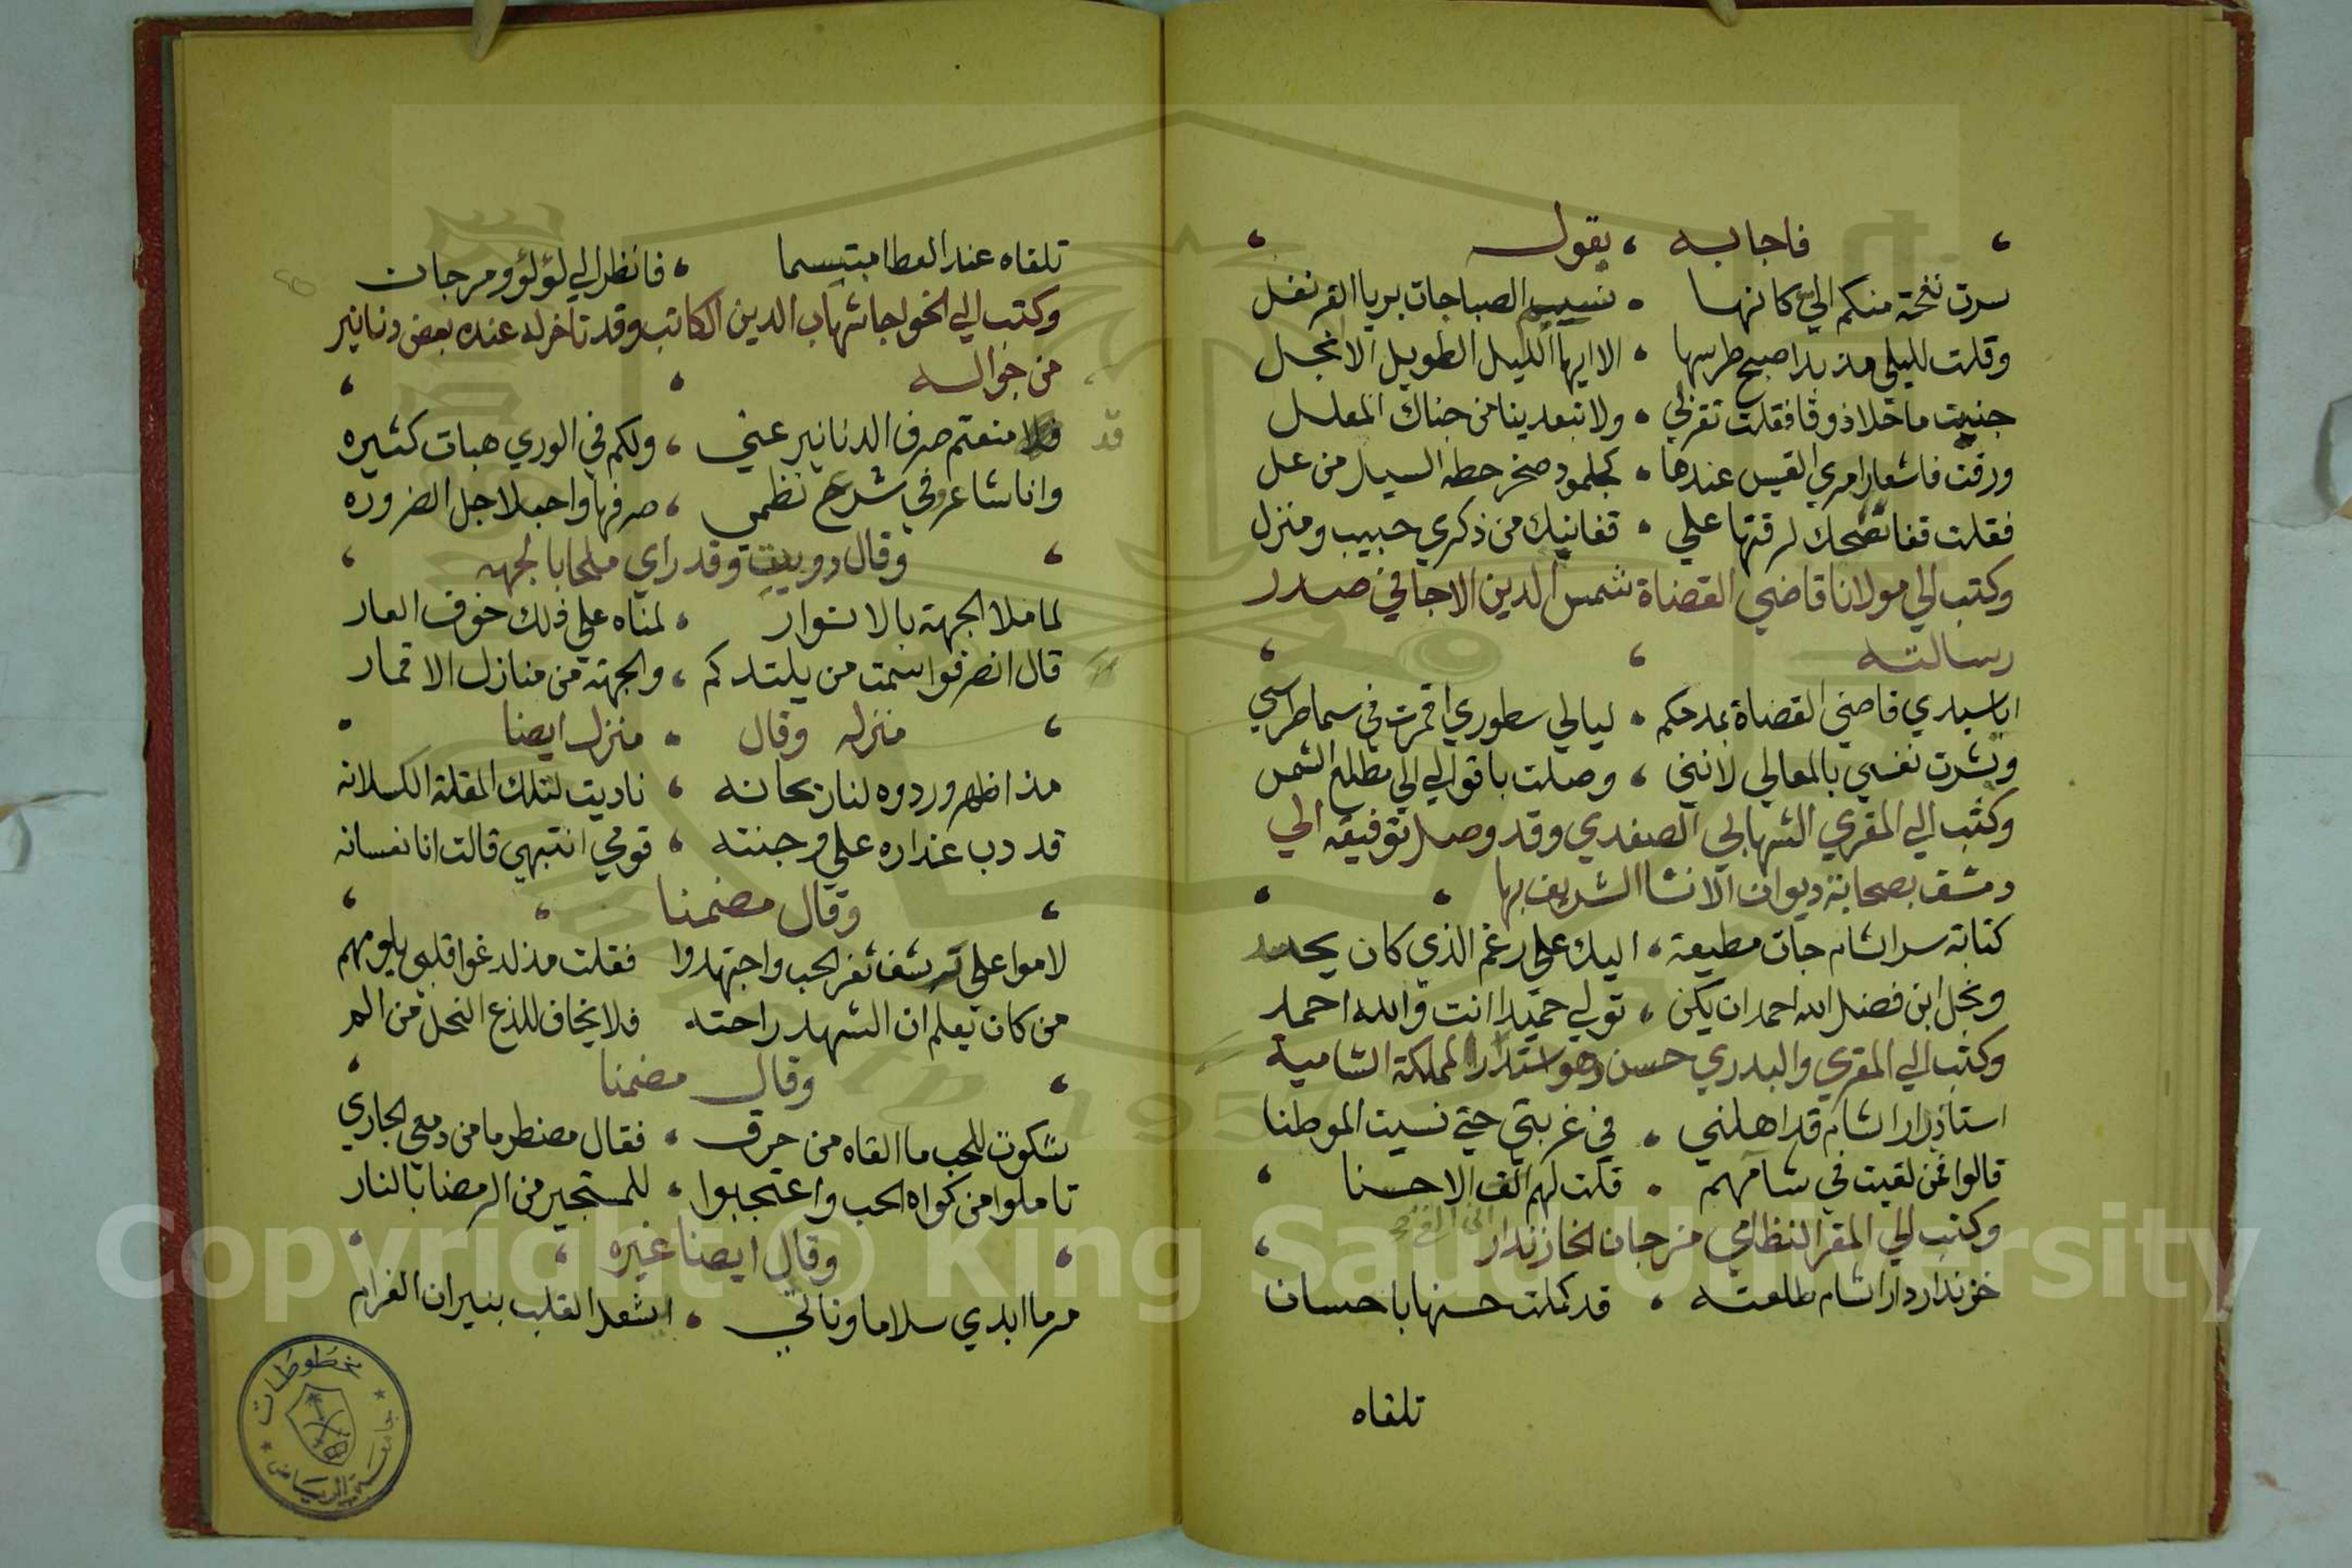 فاجابه ، يقوله
سرت نفحة منكم الي كانها • نسيم الصبا جات بريا القرنفل
وقلت لليلي مذ بدا صبح طرسها • الا ايها الليل الطويل الا انجل
جنيت ما حلا ذوقا فقلت تقربي • ولا تبعدينا من جناك المعلل
ورقت فاشعار امري القيس عندها • كجلمود صخر حطه السيل من عل
فقلت قفا نضحك لرقتها علي • قفا نبك من ذكري حبيب ومنزل
وكتب الي مولانا قاضي القضاة شمس الدين الاجا في صدر
رسالته
ايا سيدي قاضي القضاة بمدحكم • ليالي سطوري اقمرت في سما طرسي
وبشرت نفسي بالمعالي لانني ، وصلت باقوالي الي مطلع الشمس
وكتب الي المقري الشهابي الصفدي وقد وصل توقيعه الي
دمشق بصحابة ديوان الانشا الشريف بها
كتابة سر الشام جات مطيعة ، اليك علي رغم الذي كان يحسد
ونجل ابن فضل الله احمد ان يكن ، تولي حميدا انت والله احمد
وكتب الي المقري والبدري حسن وهو استدار المملكة الشامية
استاذدار الشام قد اهلني • في غربتي حتي نسيت الموطنا
قالوا فمن لقيت في شامهم • قلت لهم الف الاحسنا
وكتب الي المقر النظامي مرجان الخازندار
خزندار دار الشام طلعته • قد كملت حسنها باحسان
تلقاه
تلقاه عند العطا مبتسما ، فانظر الي لؤلؤ ومرجان
وكتب الي الخواجا شهاب الدين الكاتب وقد تاخر له عنده بعض دنانير
من جواله
قد
منعتم صرف الدنانير عني ، ولكم في الوري هبات كثيره
وانا شاعر وفي شرع نظمي ، صرفها واجب لاجل الضروره
وقال دوبيت وقد راي ملحا بالجهه
لما ملا الجهة بالانوار • لمناه علي ذلك خوف العار
قال انصرفوا سمت من يلتدكم ، والجهة من منازل الاقمار
منزله وقال • منزل ايضا
مذ اظهر وردوه لنا ريحانه ، ناديت لتلك المقلة الكسلانه
قد دب عذاره علي وجنته • قومي انتبهي قالت انا نعسانه
وقال مضمنا
لاموا علي ترشف ثغر الحب واجتهدوا فقلت مذ لدغوا قلبي بلومهم
من كان يعلم ان الشهد راحته فلا يخاف للذع النحل من الم
وقال مضمنا
شكوت للحب ما القاه من حرق • فقال مضطرما من دمعي الجاري
تاملوا من كواه الحب واعتجبوا • للمستجير من الرمضا بالنار
وقال ايضا غيره
مر ما ابدي سلاما وناني • اشعل القلب بنيران الغرام
مخطوطات
جامعة الرياض
Copyright © King Saud University
1957